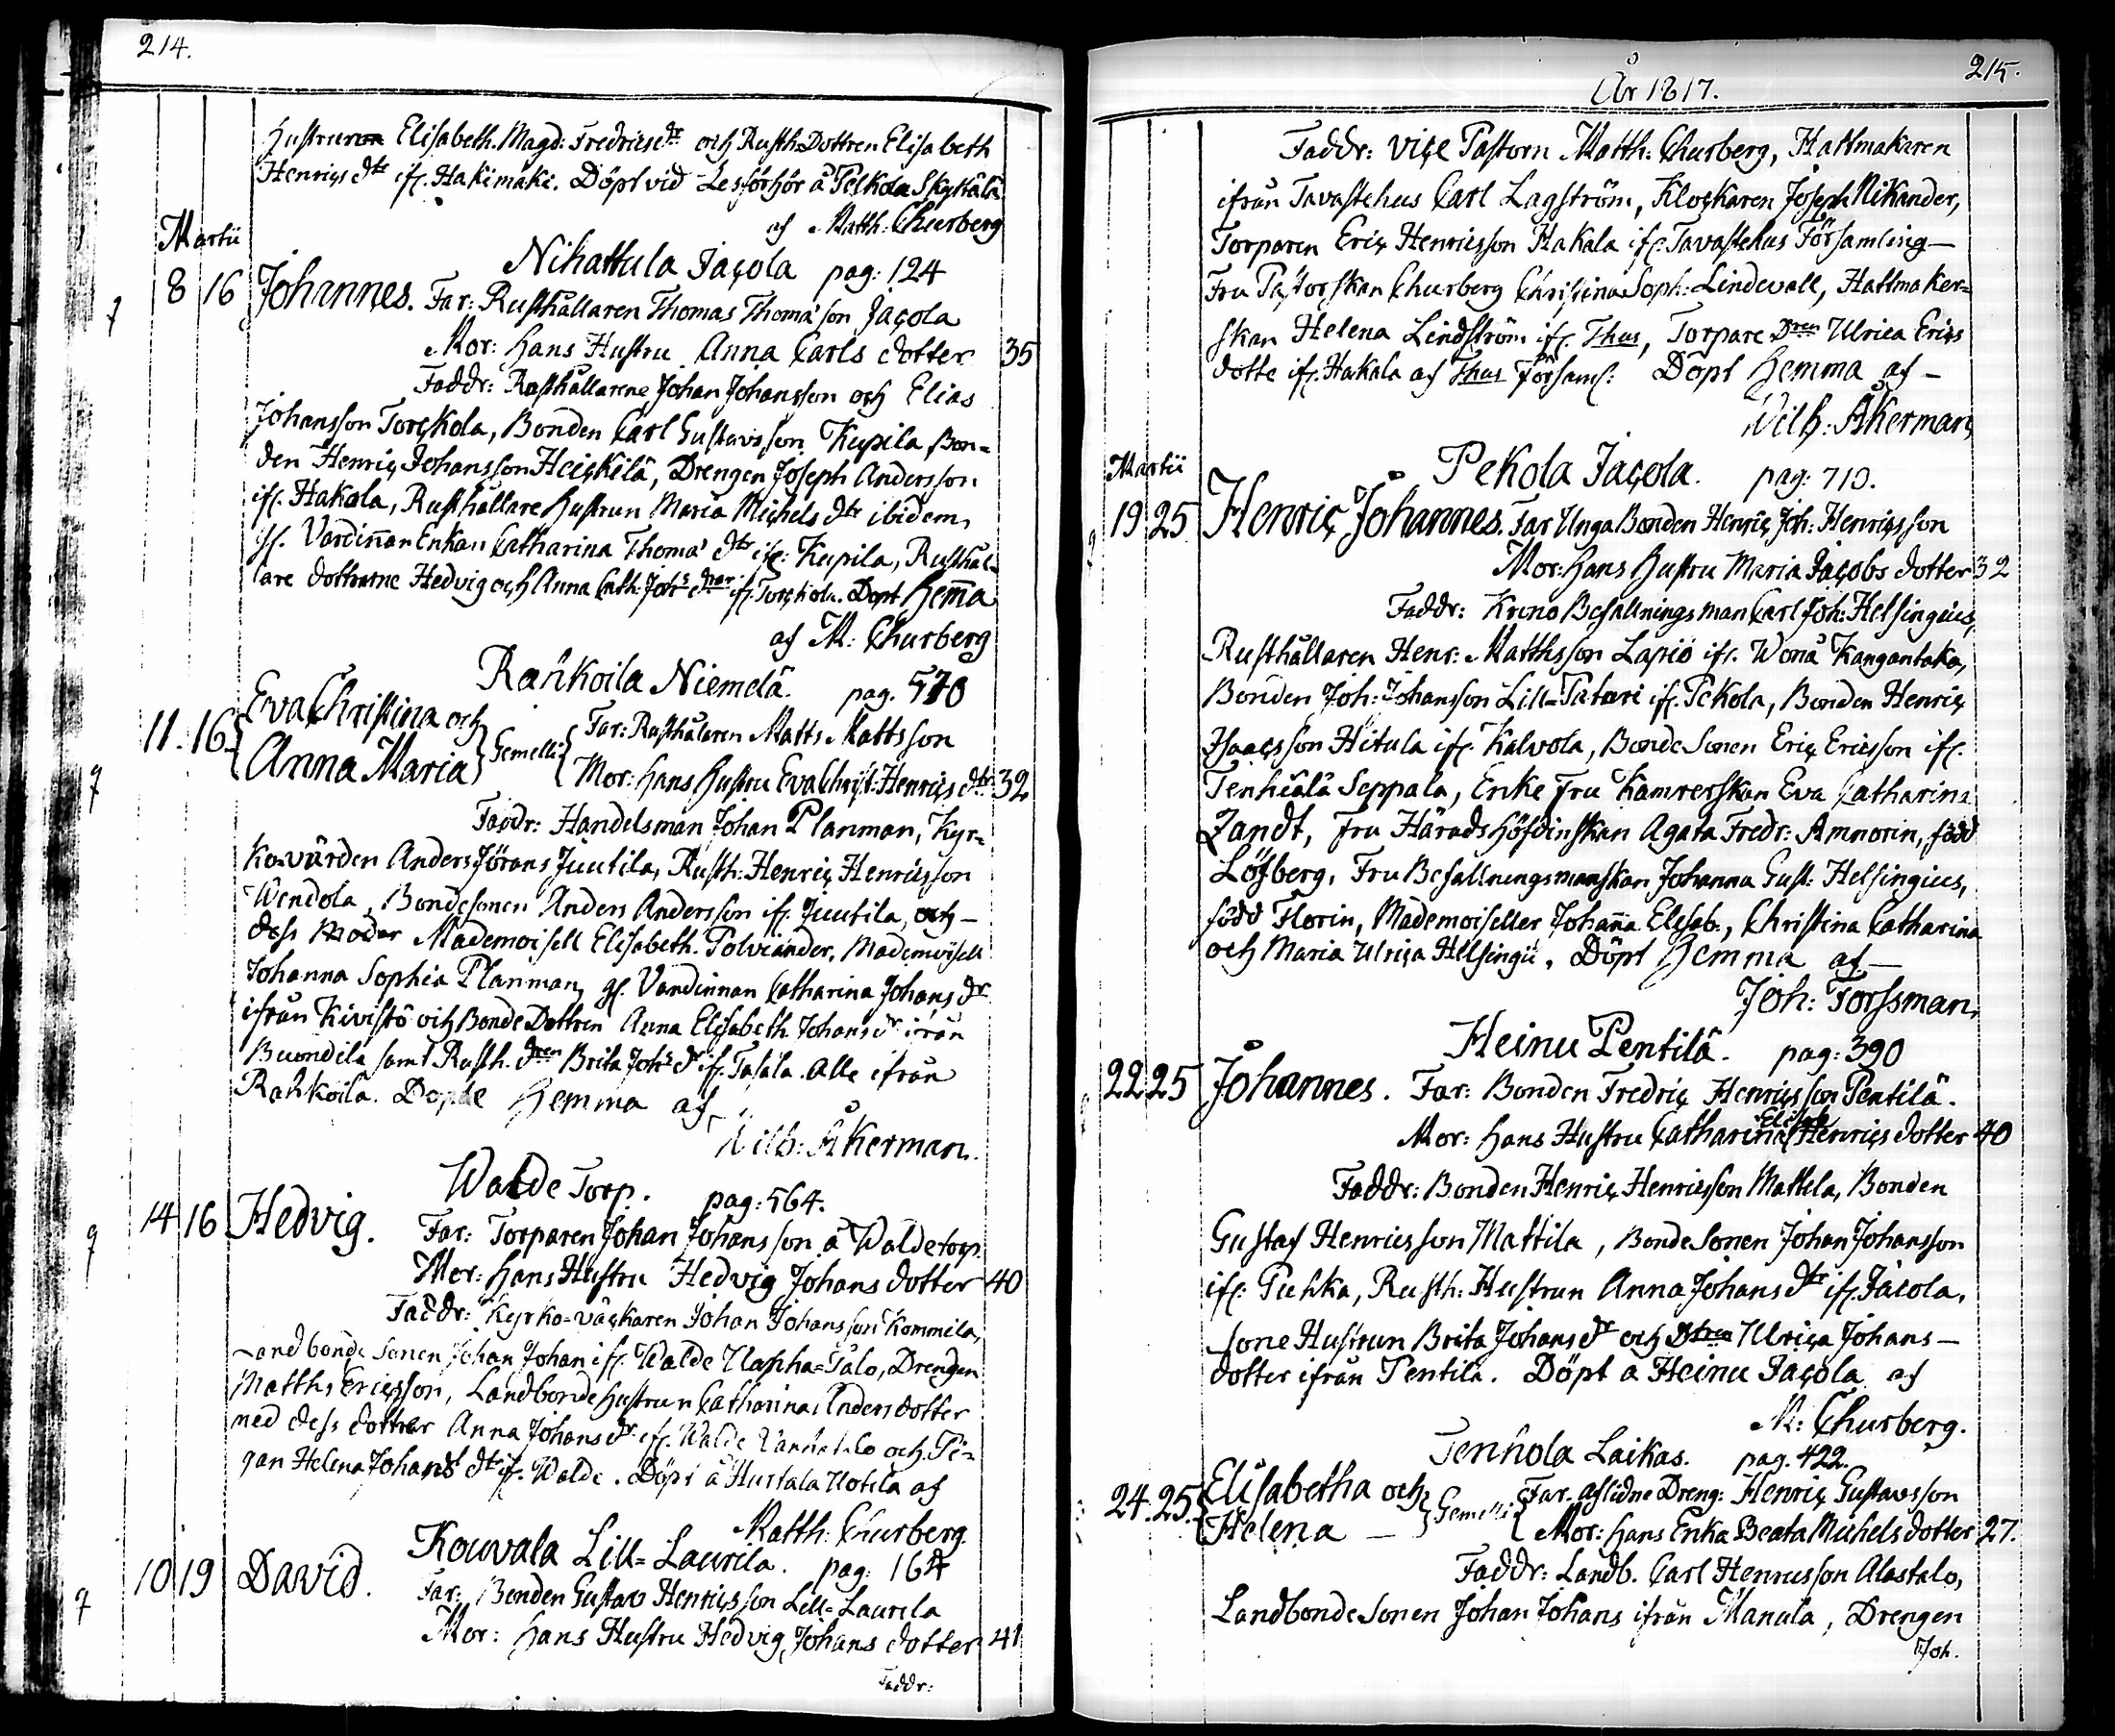 214.
Hustrun Elisabeth. Magd: Fredricsdr och Rusth. Dottren Elisabeth
Henricsdtr ifr. Hakimäki. Döpt vid Lesförhör å Pelkola Skyttälä
af Matth: Churberg
Martii
Nihattula Jacola pag: 124
8 16 Johannes. Far: Rusthållaren Thomas Thomæson Jacola
Mor: Hans Hustru Anna Carls dotter 35
Faddr: Rusthållarene Johan Johansson och Elias
Johansson Torckola, Bonden Carl Gustavsson Kupila Bon=
den Henric Johansson Heickilä, Drengen Joseph Andersson
ifr. Hakala, Rusthållare Hustrun Maria Michels dtr ibidem,
gl. Värdinnan Enkan Catharina Thomæ dtr ifr. Kupila, Rusthål=
lare dottrarne Hedvig och Anna Cath. Johs drar ifr. Torckola. Döpt Hemma
af M: Churberg
Rahkoila Niemelä. pag. 570
11. 16. Eva Christina och
Anna Maria Gemelli Far: Rusthålaren Matts Mattsson
Mor: Hans Hustru Eva Christ: Henrics dtr 32
Faddr: Handelsman Johan Planman, Kyr=
kovärden Anders Jörans Juutila, Rusth: Henric Henricsson
Wendola, Bondesonen Anders Andersson ifr. Juutila, och —
dess Moder Mademoisell Elisabeth. Polviander, Mademoisell
Johanna Sophia Planman, gl. Värdinnan Catharina Johans dr
ifrån Kivistö och Bonde Dottren Anna Elisabeth Johans dr ifrån
Buondila samt Rusth. dren Brita Johs dr ifr. Tasala. Alle ifrån
Rahkoila. Döpte Hemma af
Wilh: Åkerman.
Walde Torp. pag: 564.
14 16 Hedvig. Far: Torparen Johan Johansson å Walde torp.
Mor: Hans Hustru Hedvig Johans dotter 40
Faddr: Kyrko=väckaren Johan Johansson Kommila,
Landbonde Sonen Johan Johan ifr. Walde Uapha=Talo, Drengen
Matths Ericsson, Landbonde Hustrun Catharina Anders dotter
med dess dotter Anna Johans dr. ifr. Walde Vanhatalo och Pi=
gan Helena Johans dtr ifr. Walde. Döpt å Hurtala Uotila af
Matth: Churberg.
Kouvala Lill=Laurila. pag: 164
10 19 David. Far: Bonden Gustav Henricsson Lill=Laurila
Mor: Hans Hustru Hedvig Johans dotter 41
Faddr:
År 1817.
215.
Faddr: Vice Pastorn Matth: Churberg, Hattmakaren
ifrån Tavastehus Carl Lagström, Klockaren Joseph Nikander,
Torparen Eric Henricsson Hakala ifr. Tavastehus Församling —
Fru Pastorskan Churberg Christina Soph: Lindevall, Hattmaker=
skan Helena Lindström ifr. Thus, Torpare Dren Ulrica Erics
dotte ifr. Hakala af Thus Församl: Döpt Hemma af —
Wilh: Åkerman,
Martii
Pekola Jacola. pag: 710.
19 25 Henric Johannes. Far Unga Bonden Henric Joh: Henricsson
Mor: Hans Hustru Maria Jacobs dotter 32
Faddr: Krono Befallningsman Carl Joh: Helsingius,
Rusthållaren Henr: Matthsson Lapio ifr. Wonå Kangantaka,
Bonden Joh: Johansson Lill=Patari ifr. Pekola, Bonden Henric
Isaacsson Hitula ifr. Kalvola, Bonde Sonen Eric Ericsson ifr.
Tenhiälä Seppälä, Enke Fru Kamrerskan Eva Catharina
Zandt, Fru Häradshöfdinskan Agata Fredr: Amnorin, född
Löfberg, Fru Befallningsmanskan Johanna Gust: Helsingius,
född Florin, Mademoiseller Johanna Elisab., Christina Catharina
och Maria Ulrica Helsingii. Döpt Hemma af —
Joh: Forssman.
Heinu Pentilä. pag: 390
22 25 Johannes. Far: Bonden Fredric Henricsson Pentilä.
Mor: Hans Hustru Catharina Elisab Henrics dotter 40
Faddr: Bonden Henric Henricsson Mattela, Bonden
Gustaf Henricsson Mattila, Bonde Sonen Johan Johansson
ifr. Puhka, Rusth: Hustrun Anna Johans dtr ifr. Jacola.
Sone Hustrun Brita Johans dr och Dtren Ulrica Johans —
dotter ifrån Pentilä. Döpt å Heinu Jacola af
M: Churberg.
Tenhola Laikas. pag. 422.
24. 25. Elisabetha och
Helena — Gemelli Far. aflidne Dreng: Henric Gustavsson
Mor: Hans Enka Beata Michels dotter 27.
Faddr: Landb. Carl Henricsson Alastalo,
Landbonde Sonen Johan Johans ifrån Manula, Drengen
Joh.